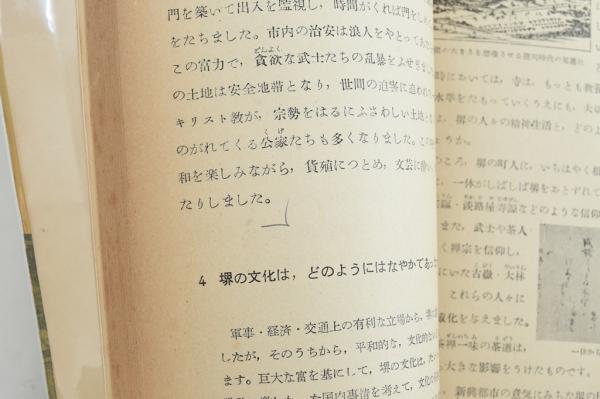 門を築いて出入を監視し，時間がくれば門をし
をたちました。市内の治安は浪人をやとって
この富力で，貪欲な武士たちの乱暴をふせぎまし
どんよく
の土地は安全地帯となり，世間の迫害に追われ
キリスト教が，宗勢をはるにふさわしい土地と
のがれてくる公家たちも多くなりました。こ
くげ
和を楽しみながら，貨殖につとめ，文芸に
たりしました。
4 堺の文化は，どのようにはなやかであっ
軍事・経済・交通上の有利な立場から，
したが，そのうちから，平和的な，文化的な
ます。巨大な富を基にして，堺の文化は，
国内事情を考えて，文化の
大きさを想像させる徳川時代の
時においては，寺は，もっとも教
水準をたもっていくうえにも，大
は，堺の人々の精神生活と，どの
ようか。
ころ，堺の町人に，いちはやく
，一休がしばしば堺をおとずれて
・淡路屋寿源などのような信仰
また，武士や茶人
く禅宗を信仰し，
にいた古嶽・大林
これらの人々に
化を与えました。
禅一味の茶道は，
大きな影響をうけたものです。
新興都市の意気にみちた堺の
一休